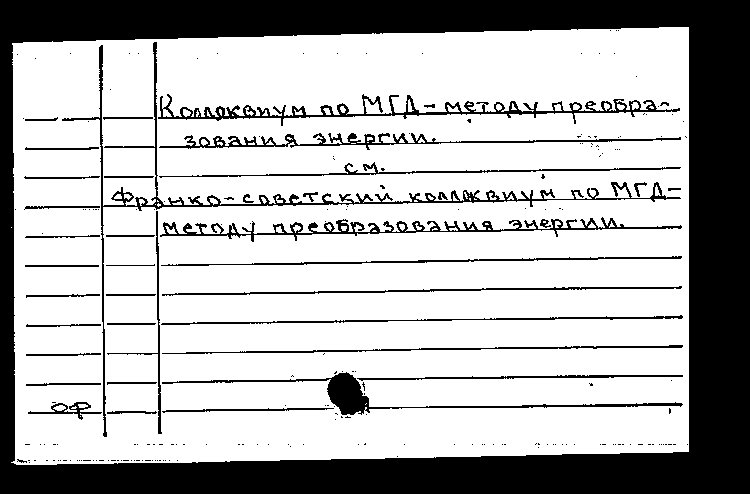 Коллоквиум по МГД-методу преобра-
зования энергии.
см.
Франко-советский коллоквиум по МГД-
методу преобразования энергии.
ОФ